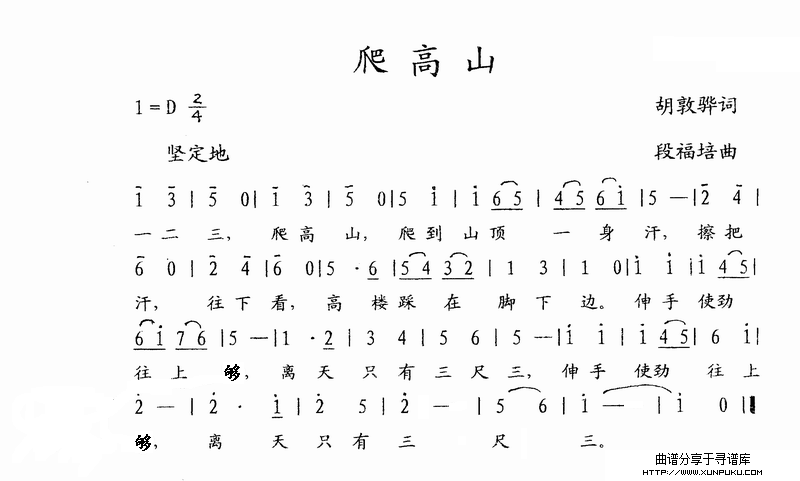 爬高山
1=D 2/4 胡敦骅词
坚定地 段福培曲
1 3 | 5 0 | 1 3 | 5 0 | 5 i | i 6 5 | 4 5 6 i | 5 — | 2 4 |
一二三, 爬高山, 爬到山顶一身汗, 擦把
6 0 | 2 4 | 6 0 | 5 · 6 | 5 4 3 2 | 1 3 | 1 0 | i i | i 4 5 |
汗, 往下看, 高楼踩在脚下边。伸手使劲
6 i 7 6 | 5 — | 1 · 2 | 3 4 | 5 6 | 5 — | i i | i 4 5 | 6 i |
往上够, 离天只有三尺三, 伸手使劲往上
2 — | 2 · i | 2 5 | 2 — | 5 6 | i — | i 0 ‖
够, 离天只有三尺三。
曲谱分享于寻谱库
WWW.XUNPUKU.COM